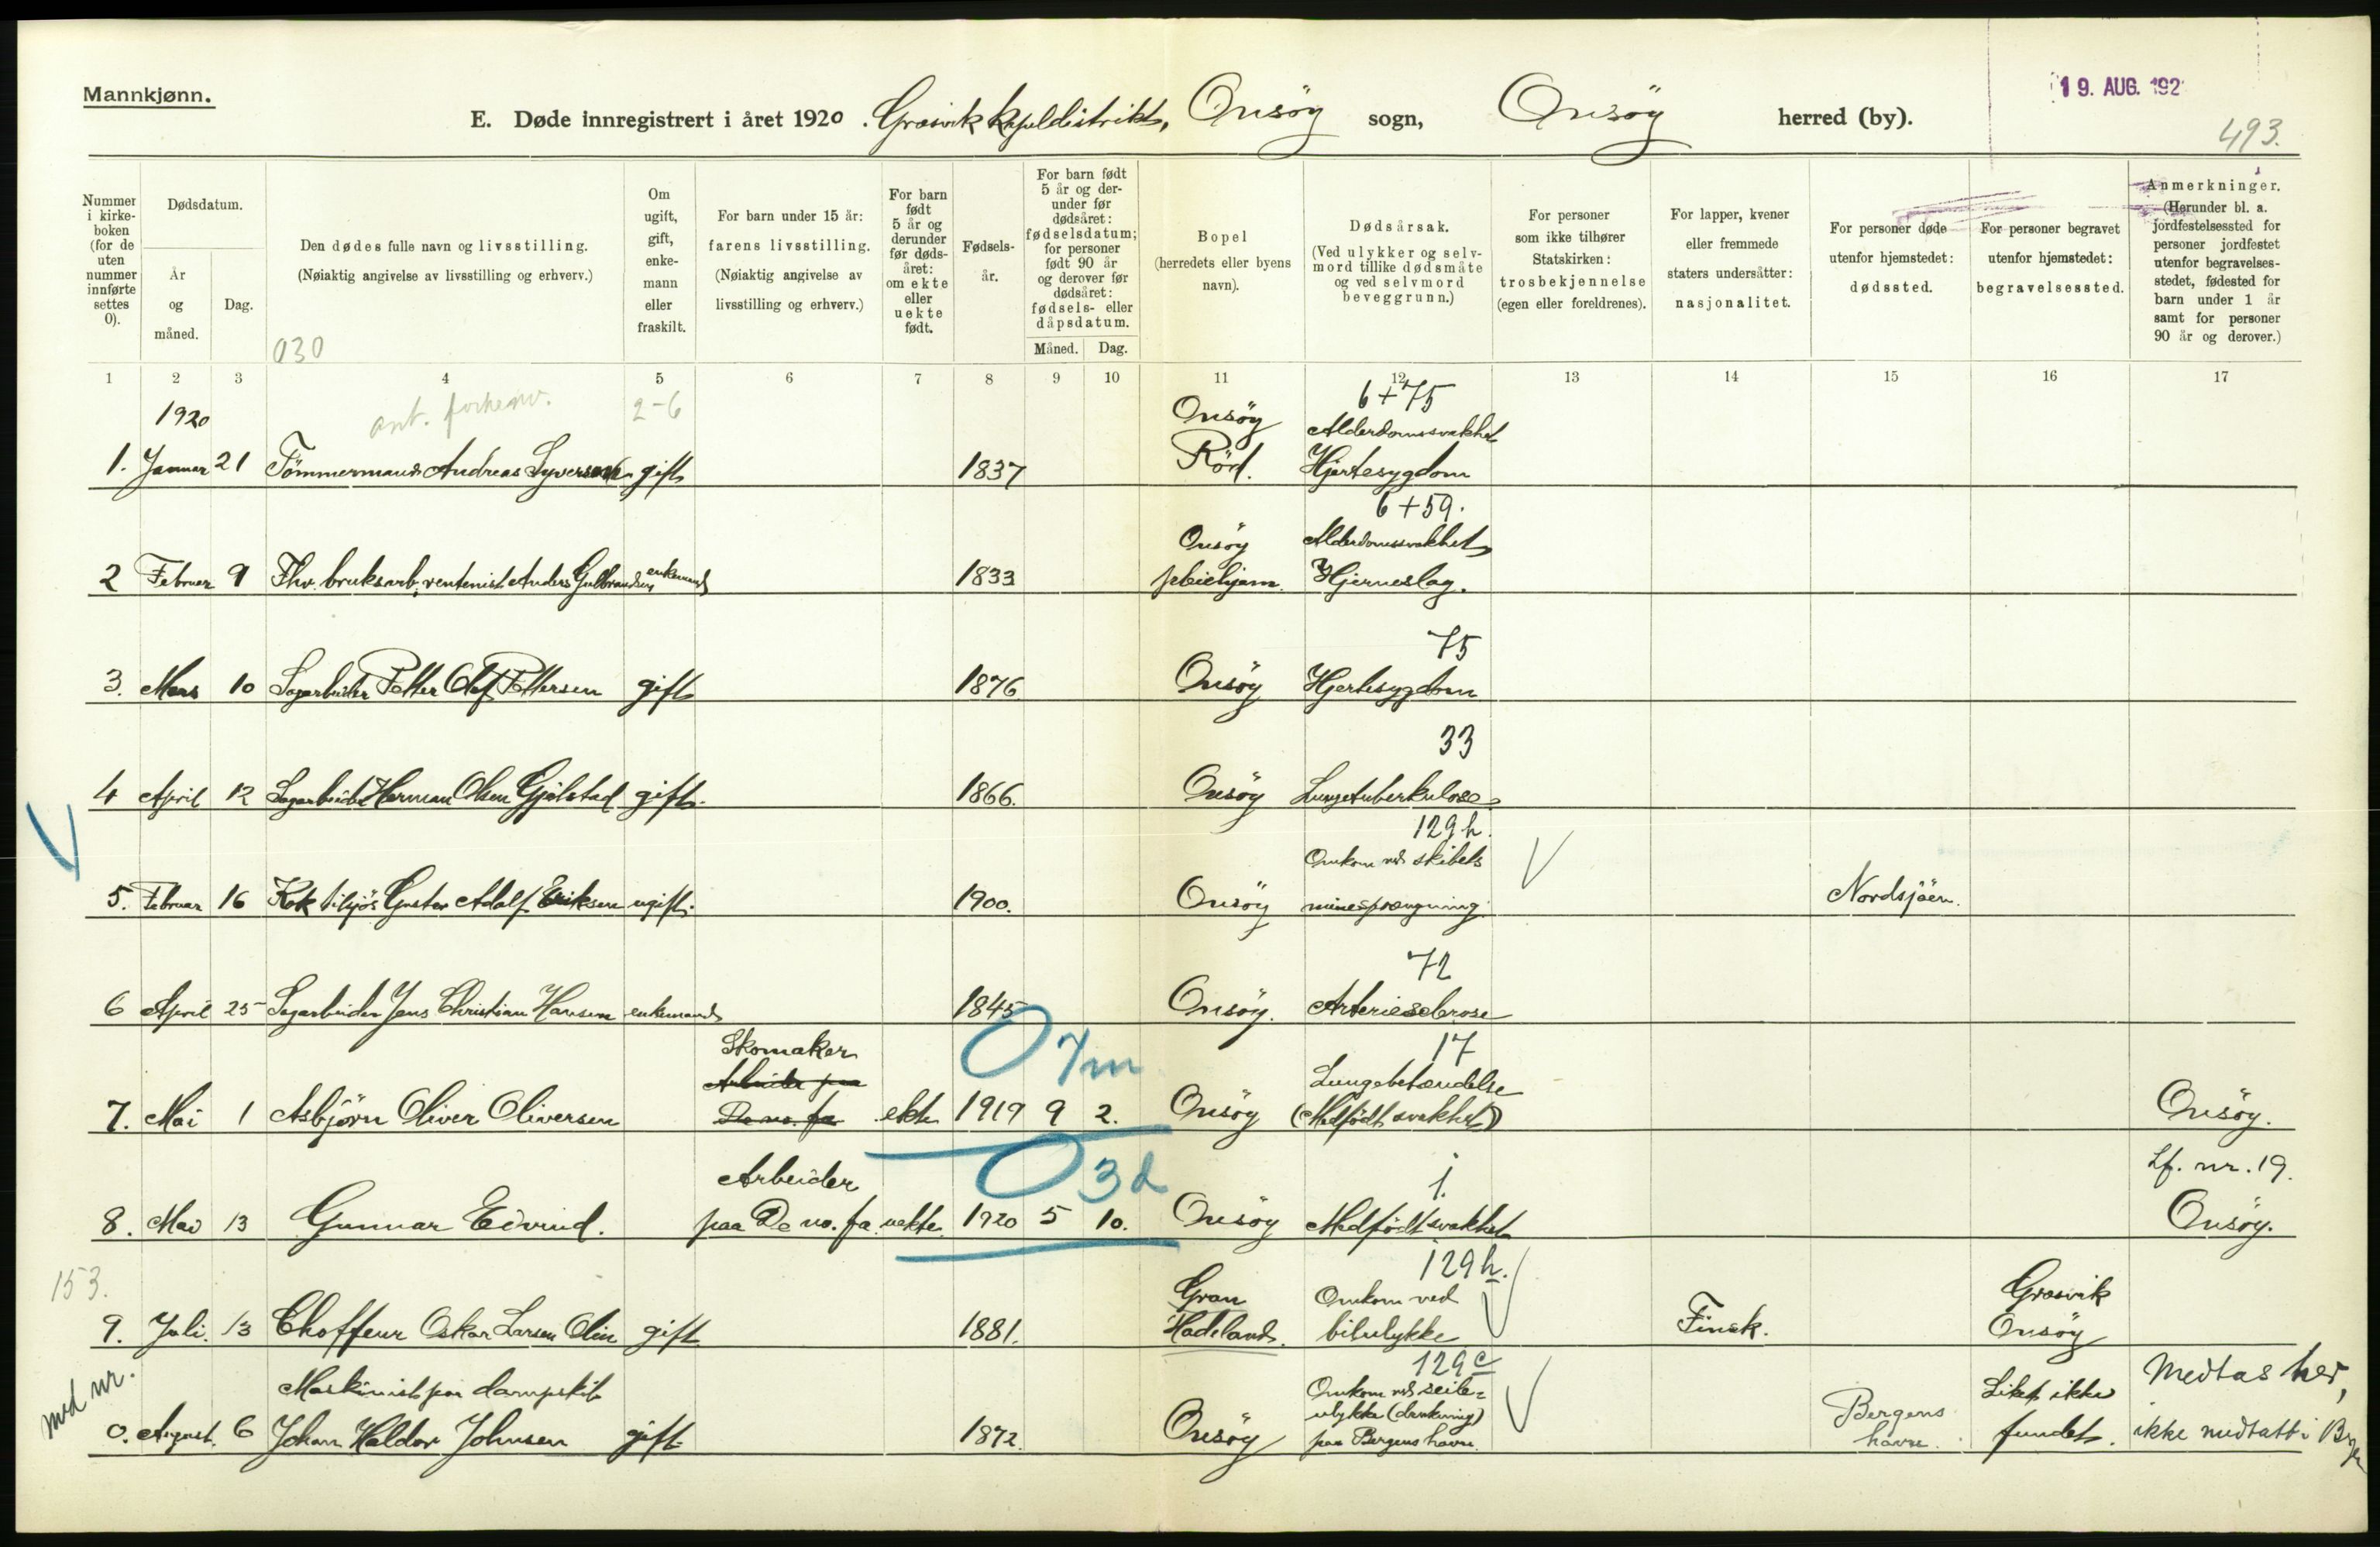 Mannkjønn.
19. AUG. 192
E. Døde innregistrert i året 1920. Græsvik kapeldistrikt, Onsöy sogn, Onsöy herred (by).
493.
Nummer i kirkeboken (for de uten nummer innførte settes 0).
Dødsdatum.
År og måned.
Dag.
Den dødes fulle navn og livsstilling.
(Nøiaktig angivelse av livsstilling og erhverv.)
030
Om ugift, gift, enkemann eller fraskilt.
For barn under 15 år:
farens livsstilling.
(Nøiaktig angivelse av livsstilling og erhverv.)
For barn født 5 år og derunder før dødsåret: om ekte eller uekte født.
Fødselsår.
For barn født 5 år og derunder før dødsåret: fødselsdatum; for personer født 90 år og derover før dødsåret: fødsels- eller dåpsdatum.
Måned. Dag.
Bopel
(herredets eller byens navn).
Dødsårsak.
(Ved ulykker og selvmord tillike dødsmåte og ved selvmord beveggrunn.)
For personer som ikke tilhører Statskirken:
trosbekjennelse
(egen eller foreldrenes).
For lapper, kvener eller fremmede staters undersåtter:
nasjonalitet.
For personer døde utenfor hjemstedet:
dødssted.
For personer begravet utenfor hjemstedet:
begravelsessted.
Anmerkninger.
(Herunder bl. a. jordfestelsessted for personer jordfestet utenfor begravelsesstedet, fødested for barn under 1 år samt for personer 90 år og derover.)
1 2 3 4 5 6 7 8 9 10 11 12 13 14 15 16 17
1920 ant. forhenv. 2-6 Onsöy 6+75 Alderdomssvakhet
1. Januar 21 Tömmermand Andreas Syversen gift 1837 Röd. Hjertesygdom
6+59.
Onsöy Alderdomssvakhet
2 Februar 9 Fhv. bruksarb, rentenist Anders Gulbrandsen enkemand 1833 pleiehjem. Hjerneslag.
75
3. Mars 10 Sagarbeider Petter Olaf Pettersen gift 1876 Onsöy Hjertesygdom
33
4 April 12 Sagarbeider Herman Olsen Gjölstad gift. 1866. Onsöy Lungetuberkulose
129 h.
Omkom ved skibets
5. Februar 16 Kok tilsjös Gustav Adolf Eriksen ugift. 1900. Onsöy minesprængning. Nordsjöen.
72
6 April 25 Sagarbeider Jens Christian Hansen enkemand 1845 Onsöy. Arteriesclerose
Skomaker 0 7m 17
Arbeider paa Lungebetændelse
7. Mai 1 Asbjörn Oliver Oliversen De no. fa ekte 1919 9 2. Onsöy (Medfödt svakhet) Onsöy.
Arbeider 0 3d 1. Lf. nr. 19.
8. Mai 13 Gunnar Eivind. paa De no. fa. uekte. 1920 5 10. Onsöy Medfödt svakhet Onsöy.
153. 129 h.
Gran Omkom ved Græsvik
9. Juli. 13 Choffeur Oskar Larsen Olin gift 1881. Hadeland. bilulykke Finsk. Onsöy
129 c
med nr. Maskinist paa dampskib Omkom ved seileulykke (drukning) Liket ikke Medtas her,
0. August. 6 Johan Haldor Johnsen gift 1872. Onsöy paa Bergens havn. Bergens havn. fundet. ikke medtatt i Bergen